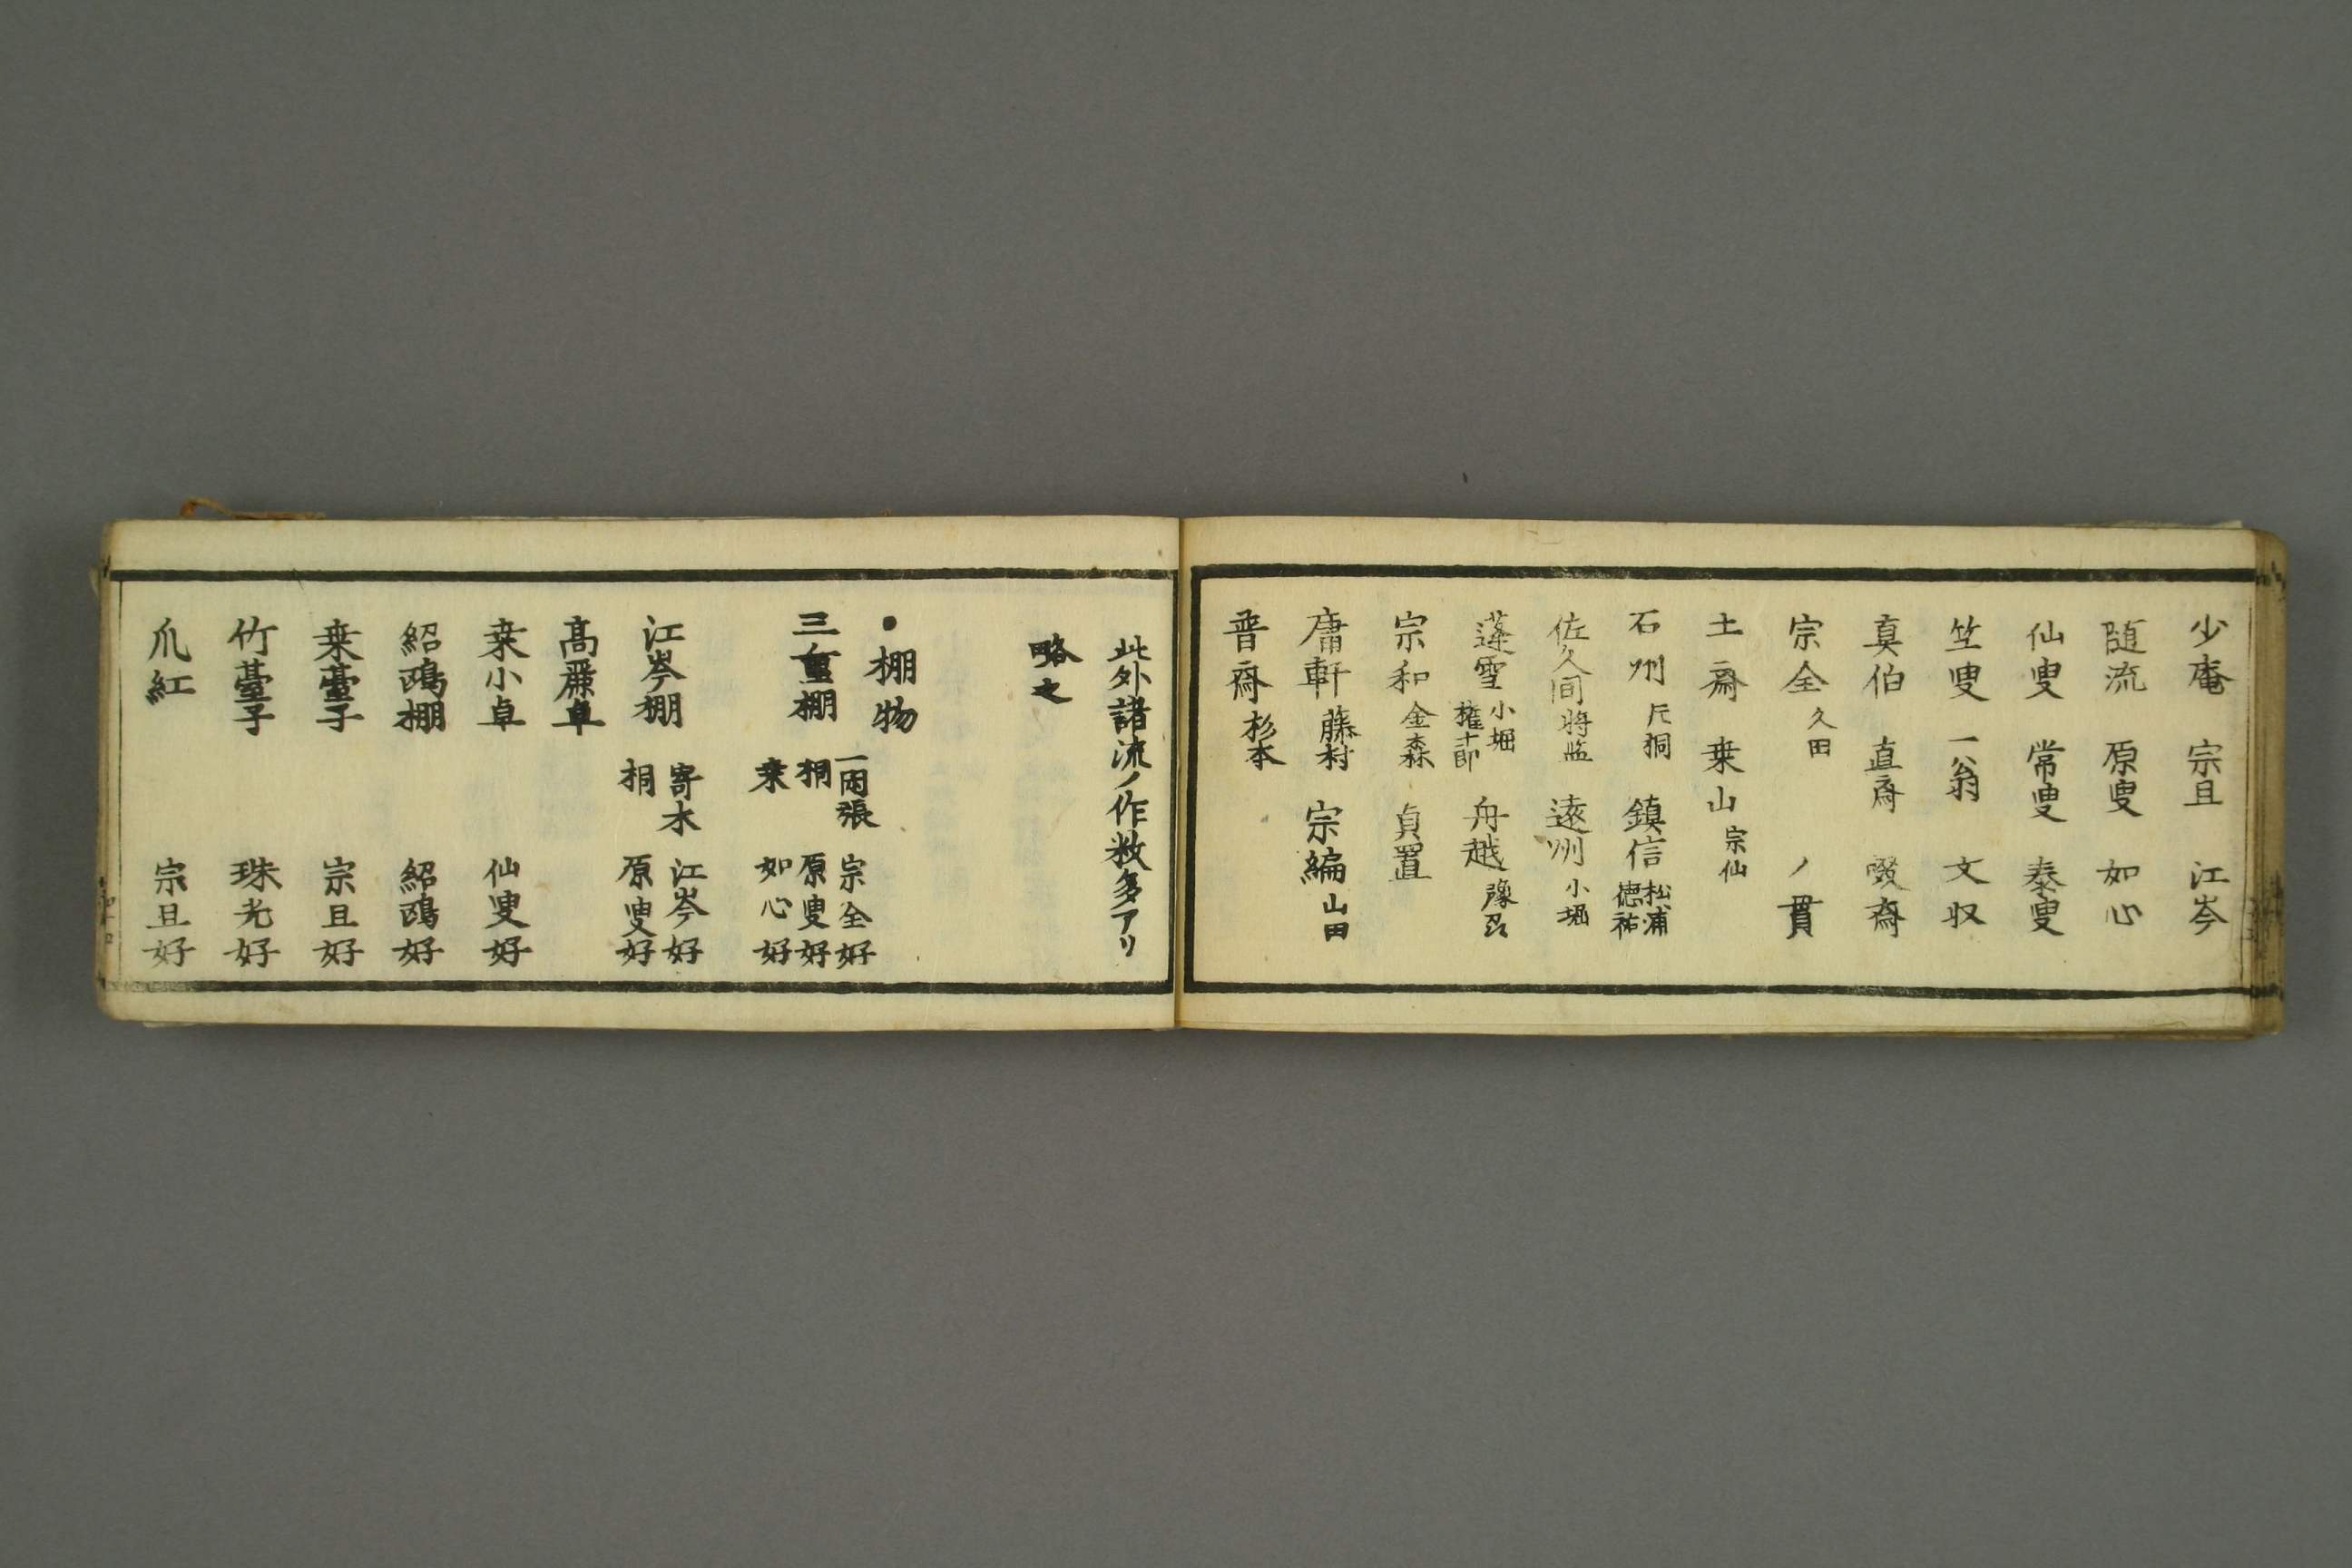 少庵 宗旦 江岑
随流 原叟 如心
仙叟 常叟 泰叟
竺叟 一翁 文収
真伯 直斎 啜斎
宗全 久田 ノ貫
土斎 桒山 宗仙
石州 片桐 鎮信 松浦 徳祐
佐久间将监 遠州 小堀
蓬雪 小堀 権十郎 舟越
宗和 金森 貞置
庸軒 藤村 宗編 山田
普斎 杉本
此外諸流ノ作数多アリ
略之
•棚物
三重棚 一閑張 宗全好
桐 原叟好
桒 如心好
江岑棚 寄木 江岑好
桐 原叟好
高麗卓
桒小卓 仙叟好
紹鴎棚 紹鴎好
桒臺子 宗旦好
竹臺子 珠光好
爪紅 宗旦好